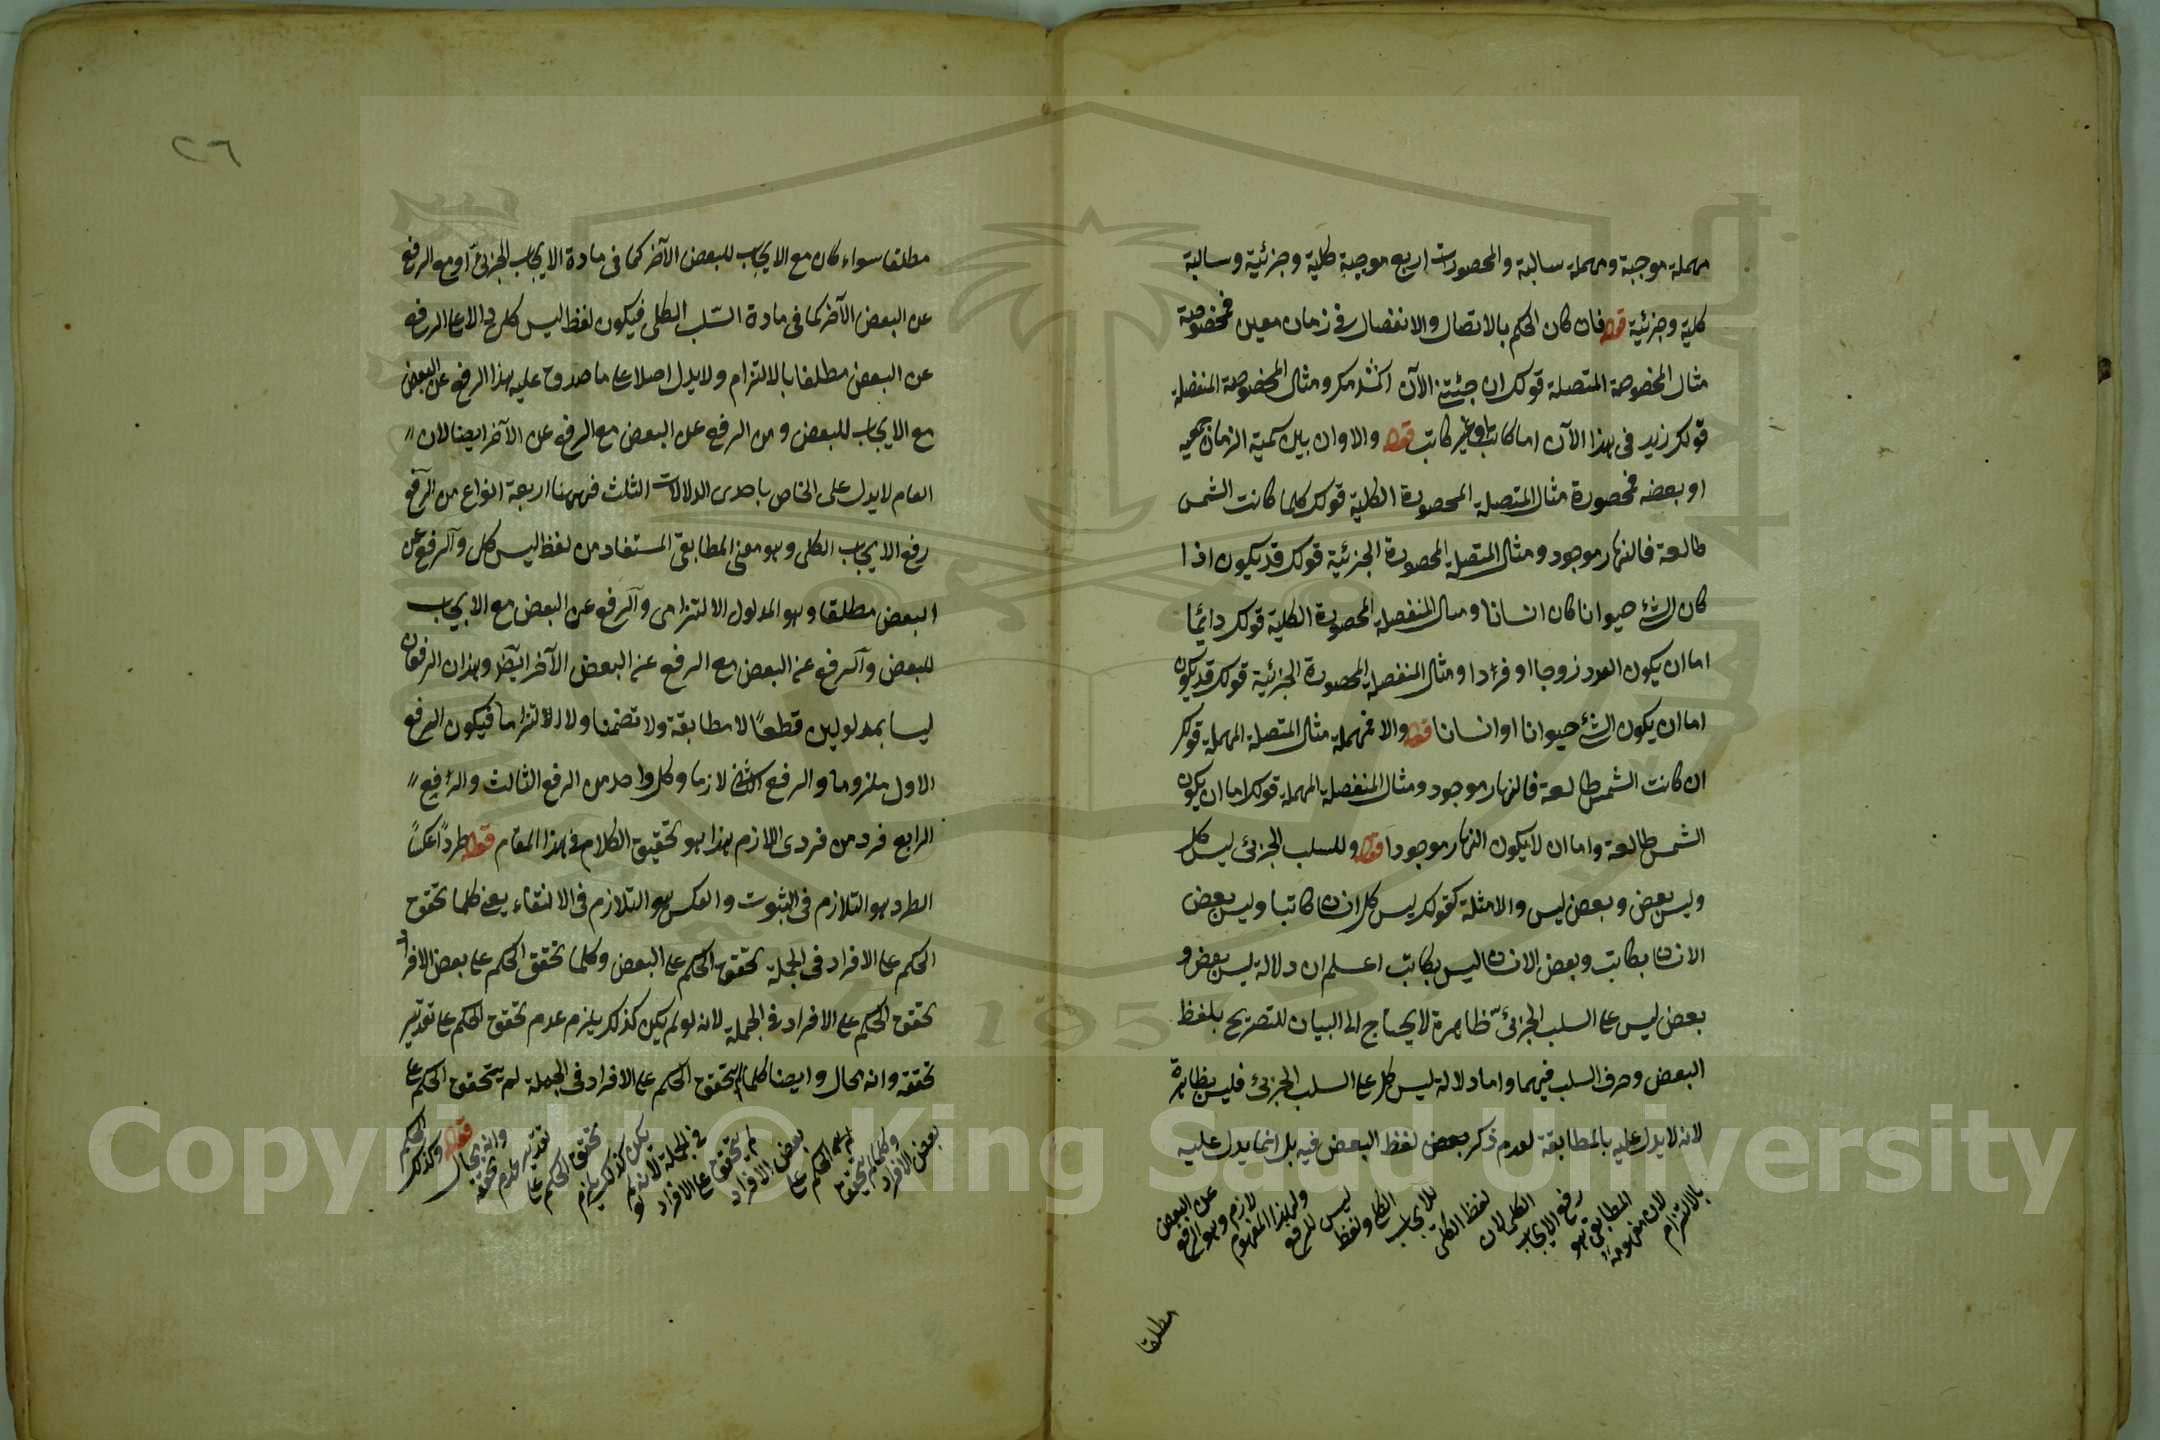 مهملة موجبة ومهملة سالبة والمحصورات اربع موجبة كلية وجزئية وسالبة
كلية وجزئية قوله فان كان الحكم بالاتصال والانفصال فى زمان معين فمخصوصة
مثال المخصوصة المتصلة قولك ان جئتنى الآن اكرمك ومثال المخصوصة المنفصلة
قولك زيد فى هذا الآن اما كاتب او غير كاتب قوله والا وان بين كمية الزمان جميعه
او بعضه فمحصورة مثال المتصلة المحصورة الكلية قولك كلما كانت الشمس
طالعة فالنهار موجود ومثال المتصلة المحصورة الجزئية قولك قد يكون اذا
كان الشئ حيوانا كان انسانا ومثال المنفصلة المحصورة الكلية قولك دائما
اما ان يكون العدد زوجا او فردا ومثال المنفصلة المحصورة الجزئية قولك قد يكون
اما ان يكون الشئ حيوانا او انسانا قوله والا فمهملة مثال المتصلة المهملة قولك
ان كانت الشمس طالعة فالنهار موجود ومثال المنفصلة المهملة قولك اما ان يكون
الشمس طالعة واما ان لا يكون النهار موجودا قوله وللسلب الجزئى ليس كل
وليس بعض وبعض ليس والامثلة كقولك ليس كل انسان كاتبا وليس بعض
الانسان بكاتب وبعض الانسان ليس بكاتب اعلم ان دلالة ليس بعض و
بعض ليس على السلب الجزئى ظاهرة لا يحتاج الى البيان للتصريح بلفظ
البعض وحرف السلب فيهما واما دلالة ليس كل على السلب الجزئى فليس بظاهرة
لانه لا يدل عليه بالمطابقة لعدم ذكر بعض لفظ البعض فيه بل انما يدل عليه
بالالتزام لان مفهومه المطابقى هو رفع الايجاب الكلى لان لفظ الكلى للايجاب الكلى ولفظ ليس للرفع ولهذا المفهوم لازم وهو الرفع عن البعض
مطلقا
٢٦
مطلقا سواء كان مع الايجاب للبعض الآخر كما فى مادة الايجاب الجزئى او مع الرفع
عن البعض الآخر كما فى مادة السلب الكلى فيكون لفظ ليس كل دالا على الرفع
عن البعض مطلقا بالالتزام ولا يدل اصلا على ما صدق عليه هذا الرفع عن البعض
مع الايجاب للبعض ومن الرفع عن البعض مع الرفع عن الآخر ايضا لان
العام لا يدل على الخاص باحدى الدلالات الثلث فههنا اربعة انواع من الرفع
رفع الايجاب الكلى وهو معنى المطابقى المستفاد من لفظ ليس كل والرفع عن
البعض مطلقا وهو المدلول الالتزامى والرفع عن البعض مع الايجاب
للبعض والرفع عن البعض مع الرفع عن البعض الآخر ايضا وهذان الرفعان
ليسا بمدلولين قطعا لا مطابقة ولا تضمنا ولا التزاما فيكون الرفع
الاول ملزوما والرفع الثانى لازما وكل واحد من الرفع الثالث والرفع
الرابع فرد من فردى اللازم هذا هو تحقيق الكلام فى هذا المقام قوله طردا وعكسا
الطرد هو التلازم فى الثبوت والعكس هو التلازم فى الانتفاء يعنى كلما تحقق
الحكم على الافراد فى الجملة تحقق الحكم على البعض وكلما تحقق الحكم على بعض الافراد
تحقق الحكم على الافراد فى الجملة لانه لو لم يكن كذلك يلزم عدم تحقق الحكم على تقدير
تحققه وانه محال وايضا كلما لم يتحقق الحكم على الافراد فى الجملة لم يتحقق الحكم على
بعض الافراد وكلما لم يتحقق الحكم على بعض الافراد لم يتحقق على الافراد فى الجملة لانه لو لم يكن كذلك يلزم تحقق الحكم على تقدير عدم تحققه وانه محال قوله وكذلك الحكم
Copyright © King Saud University
1957